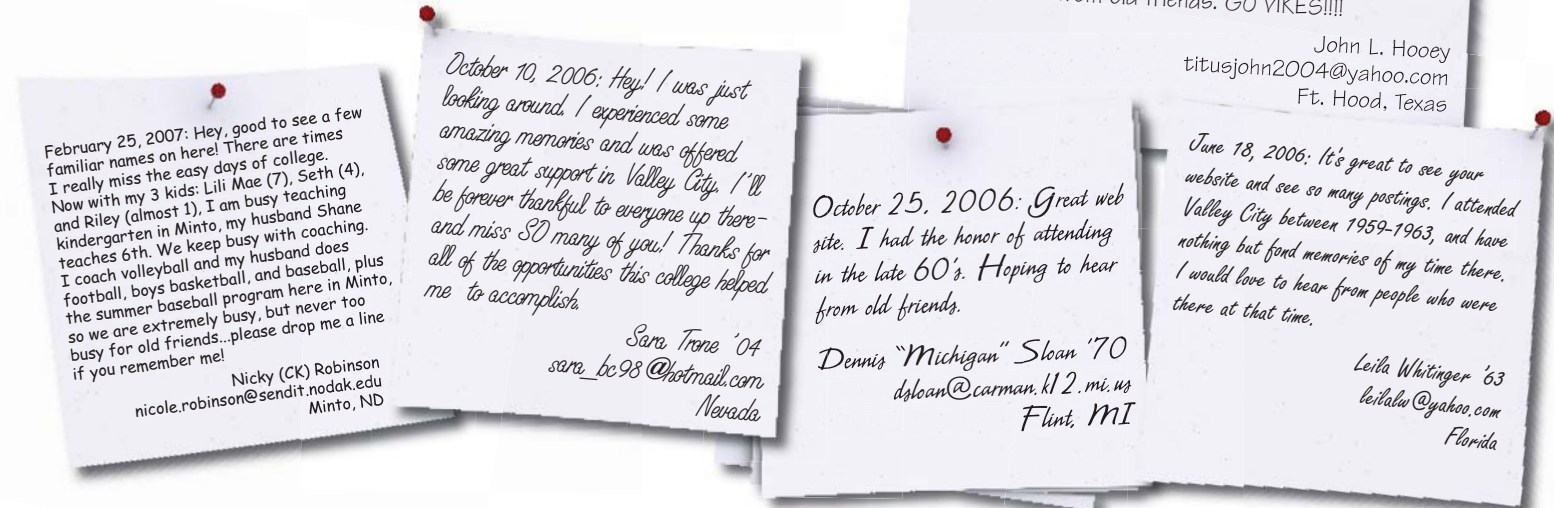 from old friends. GO VIKES!!!!
John L. Hooey
titusjohn2004@yahoo.com
Ft. Hood, Texas
February 25, 2007: Hey, good to see a few
familiar names on here! There are times
I really miss the easy days of college.
Now with my 3 kids: Lili Mae (7), Seth (4),
and Riley (almost 1), I am busy teaching
kindergarten in Minto, my husband Shane
teaches 6th. We keep busy with coaching.
I coach volleyball and my husband does
football, boys basketball, and baseball, plus
the summer baseball program here in Minto,
so we are extremely busy, but never too
busy for old friends...please drop me a line
if you remember me!
Nicky (CK) Robinson
nicole.robinson@sendit.nodak.edu
Minto, ND
October 10, 2006: Hey! I was just
looking around. I experienced some
amazing memories and was offered
some great support in Valley City. I'll
be forever thankful to everyone up there-
and miss SO many of you! Thanks for
all of the opportunities this college helped
me to accomplish.
Sara Trone '04
sara_bc98@hotmail.com
Nevada
October 25, 2006: Great web
site. I had the honor of attending
in the late 60's. Hoping to hear
from old friends.
Dennis "Michigan" Sloan '70
dsloan@carman.k12.mi.us
Flint, MI
June 18, 2006: It's great to see your
website and see so many postings. I attended
Valley City between 1959-1963, and have
nothing but fond memories of my time there.
I would love to hear from people who were
there at that time.
Leila Whitinger '63
leilalw@yahoo.com
Florida